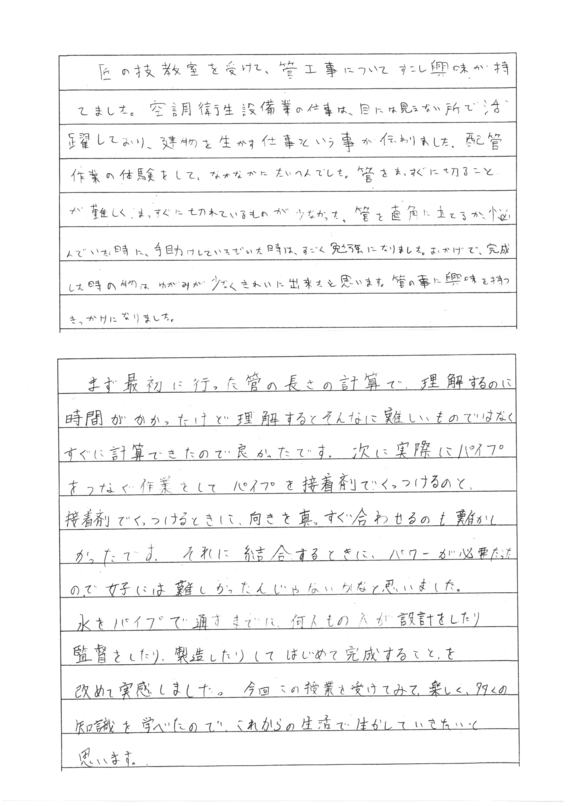 匠の技教室を受けて、管工事についてすこし興味が持
てました。空調衛生設備業の仕事は、目には見えない所で活
躍しており、建物を生かす仕事という事が伝わりました。配管
作業の体験をして、なかなかにたいへんでした。管をまっすぐに切ること
が難しく、まっすぐに切れているものが少なかった。管を直角に立てるか、悩
んでいた時に、手助けしていただいた時は、すごく勉強になりました。おかげで、完成
した時の物は、ゆがみが少なくきれいに出来たと思います。管の事に興味を持つ
きっかけになりました。
まず最初に行った管の長さの計算で、理解するのに
時間がかかったけど理解するとそんなに難しいものではなく
すぐに計算できたので良かったです。次に実際にパイプ
をつなぐ作業をしてパイプを接着剤でくっつけるのと、
接着剤でくっつけるときに、向きを真っすぐ合わせるのも難かし
かったです。それに結合するときに、パワーが必要だった
ので女子には難しかったんじゃないかなと思いました。
水をパイプで通すまでに、何人もの人が設計をしたり
監督をしたり、製造したりしてはじめて完成すること、を
改めて実感しました。今回この授業を受けてみて、楽しく、多くの
知識を学べたので、これからの生活で生かしていきたいと
思います。